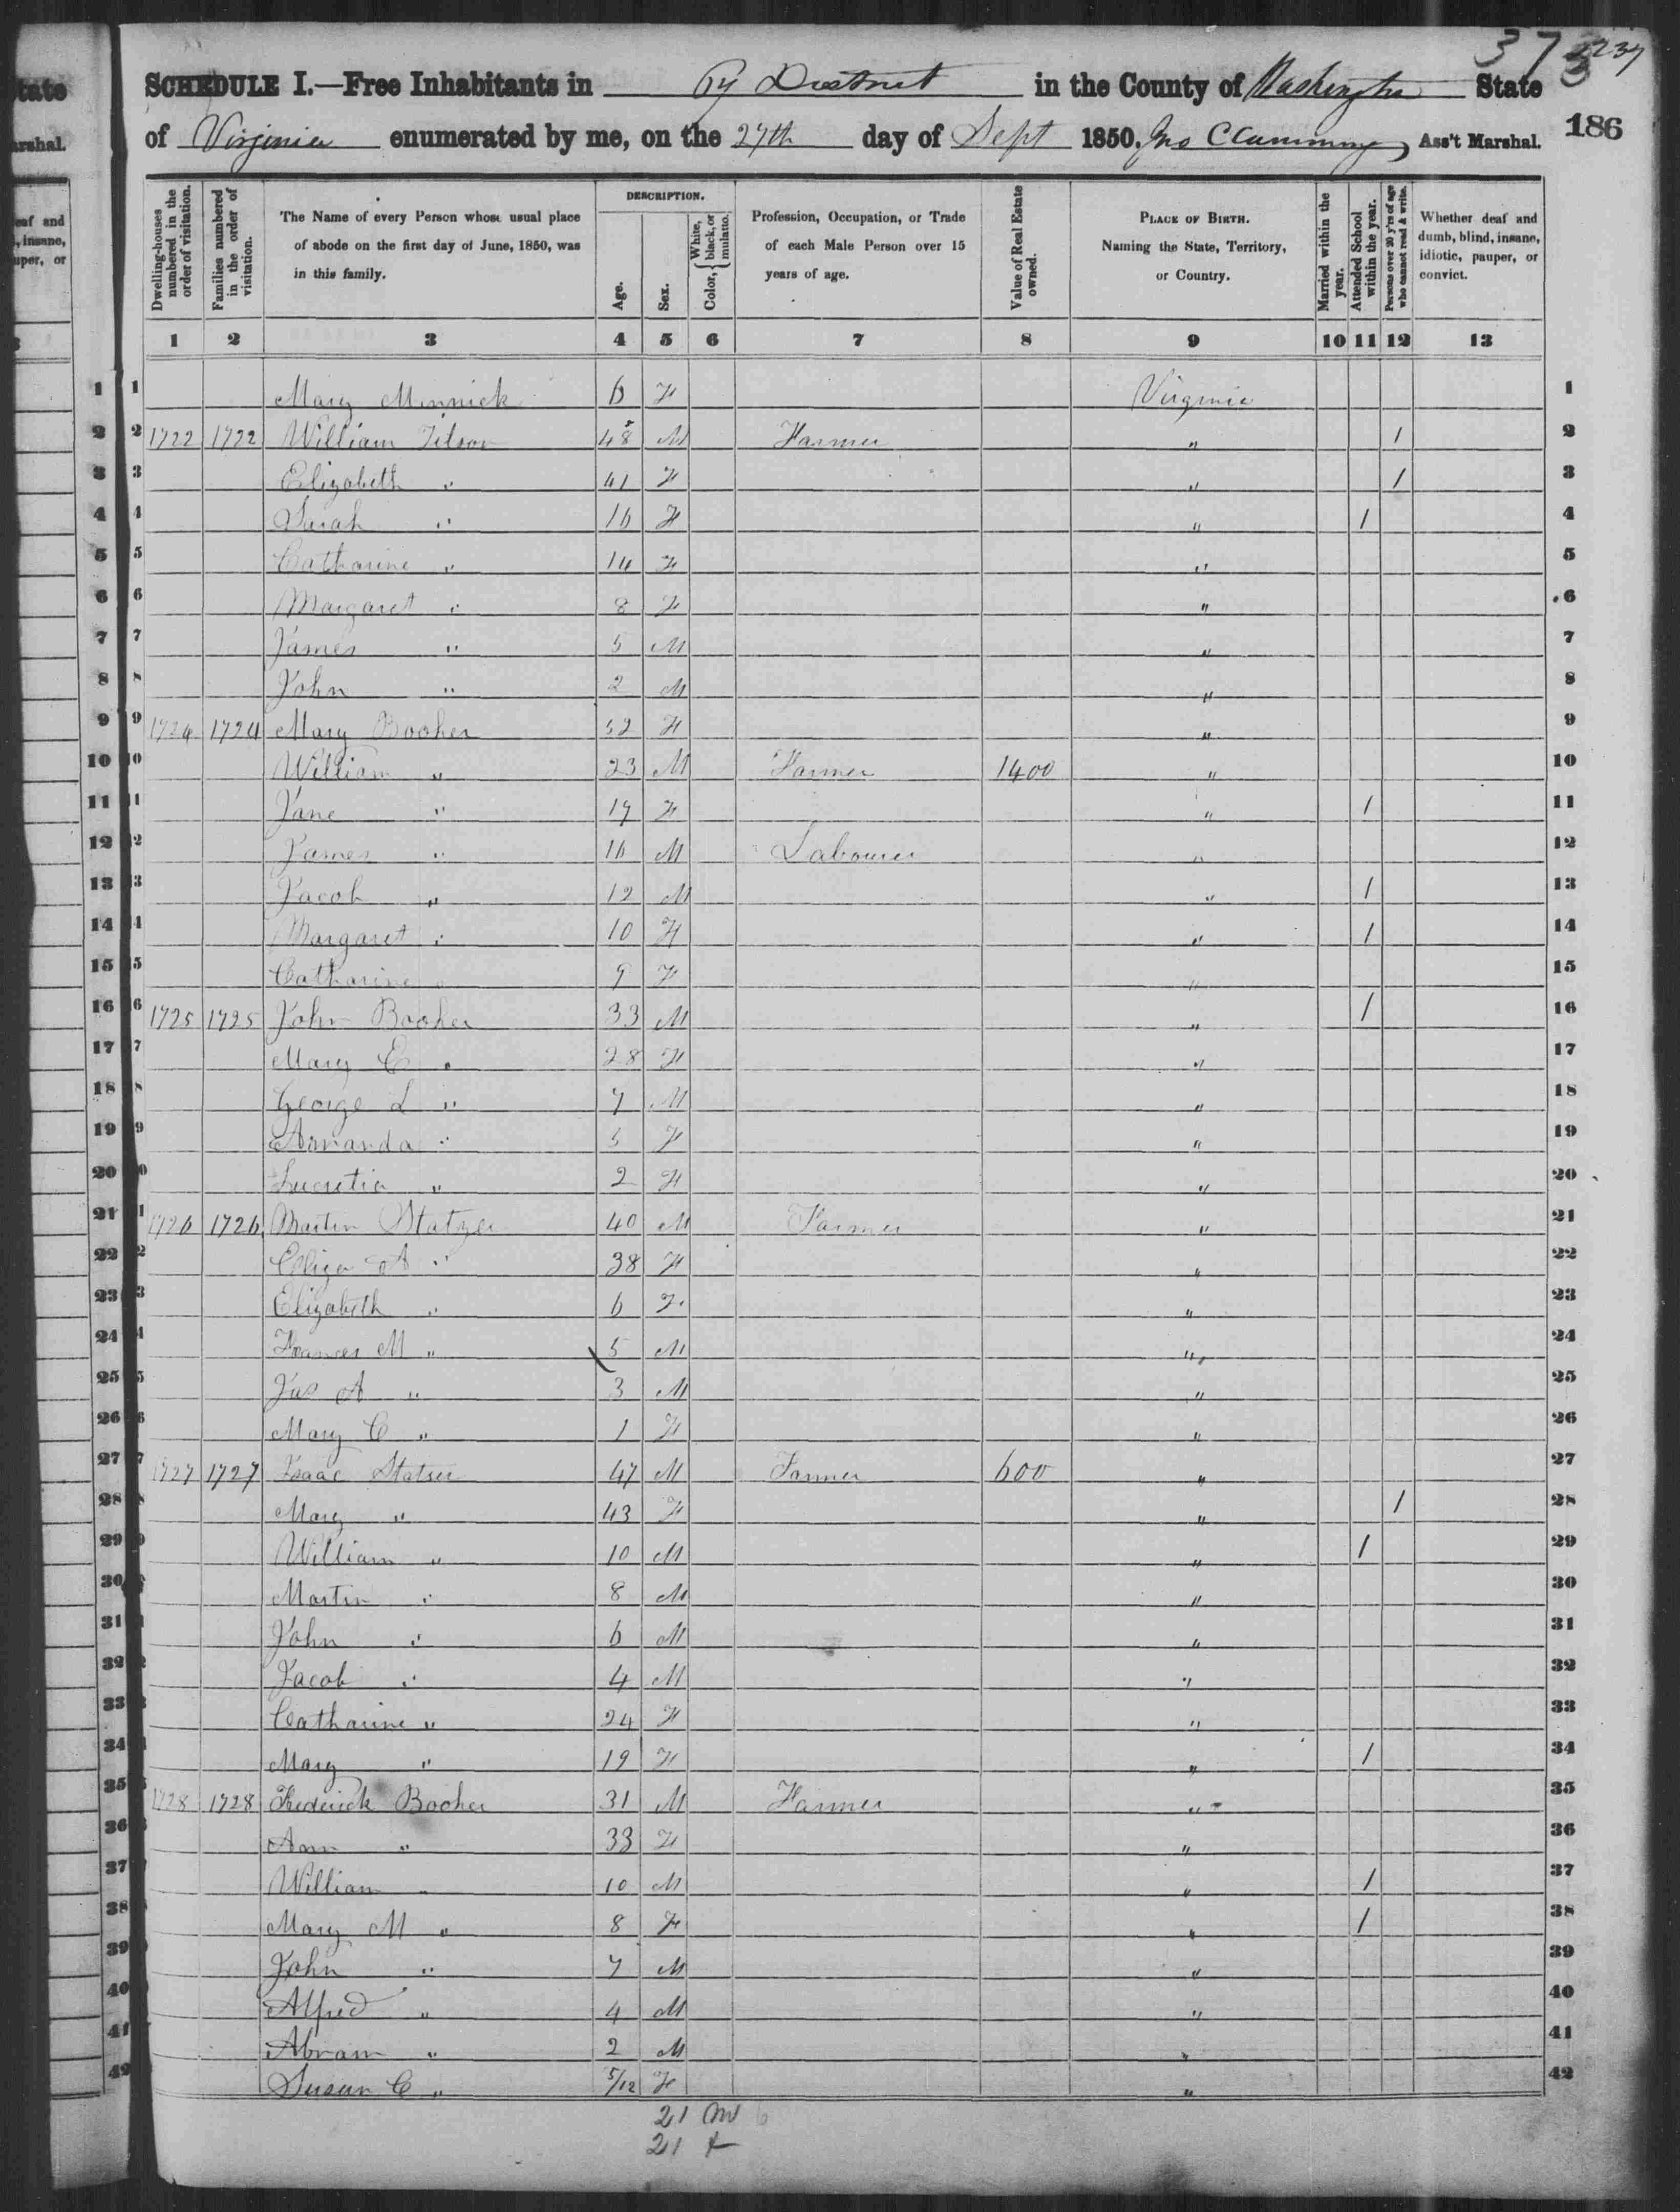 373 2237
SCHEDULE I.—Free Inhabitants in 67 District in the County of Washington State
of Virginia enumerated by me, on the 27th day of Sept 1850. Jno C Cummings Ass't Marshal.
186
Dwelling-houses numbered in the order of visitation.
Families numbered in the order of visitation.
The Name of every Person whose usual place of abode on the first day of June, 1850, was in this family.
DESCRIPTION.
Age.
Sex.
Color, { White, black, or mulatto.
Profession, Occupation, or Trade of each Male Person over 15 years of age.
Value of Real Estate owned.
PLACE OF BIRTH. Naming the State, Territory, or Country.
Married within the year.
Attended School within the year.
Persons over 20 y'rs of age who cannot read & write.
Whether deaf and dumb, blind, insane, idiotic, pauper, or convict.
1 2 3 4 5 6 7 8 9 10 11 12 13
1 Mary Minnick 6 F Virginia 1
2 1722 1722 William Tilson 48 M Farmer " 1 2
3 Elizabeth " 41 F " 1 3
4 Sarah " 16 F " 1 4
5 Catharine " 14 F " 5
6 Margaret " 8 F " 6
7 James " 5 M " 7
8 John " 2 M " 8
9 1724 1724 Mary Booher 52 F " 9
10 William " 23 M Farmer 1400 " 10
11 Jane " 19 F " 1 11
12 James " 16 M Labourer " 12
13 Jacob " 12 M " 1 13
14 Margaret " 10 F " 1 14
15 Catharine " 9 F " 15
16 1725 1725 John Booher 33 M " 1 16
17 Mary E " 28 F " 17
18 George L " 7 M " 18
19 Amanda " 5 F " 19
20 Lucretia " 2 F " 20
21 1726 1726 Martin Statzer 40 M Farmer " 21
22 Eliza A " 38 F " 22
23 Elizabeth " 6 F " 23
24 Frances M " 5 M " 24
25 Jas A " 3 M " 25
26 Mary C " 1 F " 26
27 1727 1727 Isaac Statser 47 M Farmer 600 " 27
28 Mary " 43 F " 1 28
29 William " 10 M " 1 29
30 Martin " 8 M " 30
31 John " 6 M " 31
32 Jacob " 4 M " 32
33 Catharine " 24 F " 33
34 Mary " 19 F " 1 34
35 1728 1728 Frederick Booher 31 M Farmer " 35
36 Ann " 33 F " 36
37 William " 10 M " 1 37
38 Mary M " 8 F " 1 38
39 John " 7 M " 39
40 Alfred " 4 M " 40
41 Abram " 2 M " 41
42 Susan C " 5/12 F " 42
21 M
21 F